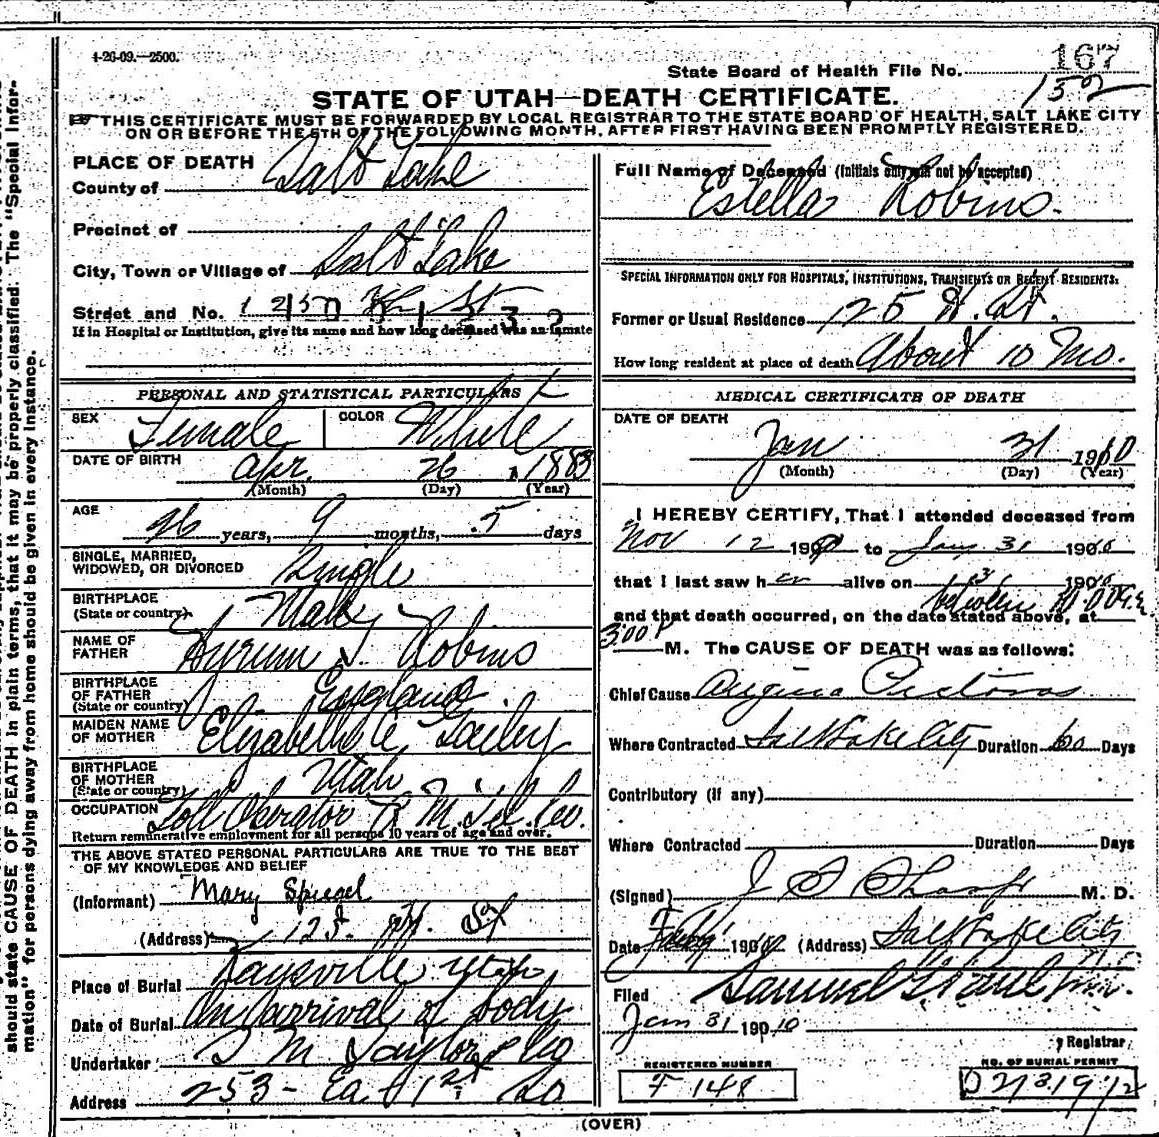 4-26-09.—2500.
State Board of Health File No. 167
152
STATE OF UTAH—DEATH CERTIFICATE.
THIS CERTIFICATE MUST BE FORWARDED BY LOCAL REGISTRAR TO THE STATE BOARD OF HEALTH, SALT LAKE CITY
ON OR BEFORE THE 5TH OF THE FOLLOWING MONTH, AFTER FIRST HAVING BEEN PROMPTLY REGISTERED.
should state CAUSE OF DEATH in plain terms, that it may be properly classified. The "Special Infor-
mation" for persons dying away from home should be given in every instance.
PLACE OF DEATH
County of Salt Lake
Precinct of
City, Town or Village of Salt Lake
Street and No. 125
If in Hospital or Institution, give its name and how long deceased was an inmate
PERSONAL AND STATISTICAL PARTICULARS
SEX Female COLOR White
DATE OF BIRTH Apr. 26 1883
(Month) (Day) (Year)
AGE 26 years, 9 months, 5 days
SINGLE, MARRIED,
WIDOWED, OR DIVORCED Single
BIRTHPLACE
(State or country)
NAME OF
FATHER Hyrum J. Robins
BIRTHPLACE
OF FATHER
(State or country) England
MAIDEN NAME
OF MOTHER Elizabeth
BIRTHPLACE
OF MOTHER
(State or country) Utah
OCCUPATION Toll Operator R. M. Tel. Co.
Return remunerative employment for all persons 10 years of age and over.
THE ABOVE STATED PERSONAL PARTICULARS ARE TRUE TO THE BEST
OF MY KNOWLEDGE AND BELIEF
(Informant) Mary Spiegel
(Address) 125. St
Place of Burial Kaysville Utah
Date of Burial On arrival of body
Undertaker S M Taylor & Co
Address 253 - Ea. 1st So
Full Name of Deceased (Initials only will not be accepted)
Estella Robins.
SPECIAL INFORMATION ONLY FOR HOSPITALS, INSTITUTIONS, TRANSIENTS OR RECENT RESIDENTS:
Former or Usual Residence 125 St.
How long resident at place of death About 10 Mo.
MEDICAL CERTIFICATE OF DEATH
DATE OF DEATH
Jan 31 1910
(Month) (Day) (Year)
I HEREBY CERTIFY, That I attended deceased from
Nov 12 190 to Jan 31 1910
that I last saw her alive on 190
and that death occurred, on the date stated above, at
300 P M. The CAUSE OF DEATH was as follows:
Chief Cause Angina Pectoras
Where Contracted Salt Lake City Duration 60 Days
Contributory (if any)
Where Contracted Duration Days
(Signed) J S Sharp M. D.
Date 190 (Address) Salt Lake City
Filed Samuel G. Paul
Jan 31 1910
Registrar
REGISTERED NUMBER
F 148
NO. OF BURIAL PERMIT
(OVER)